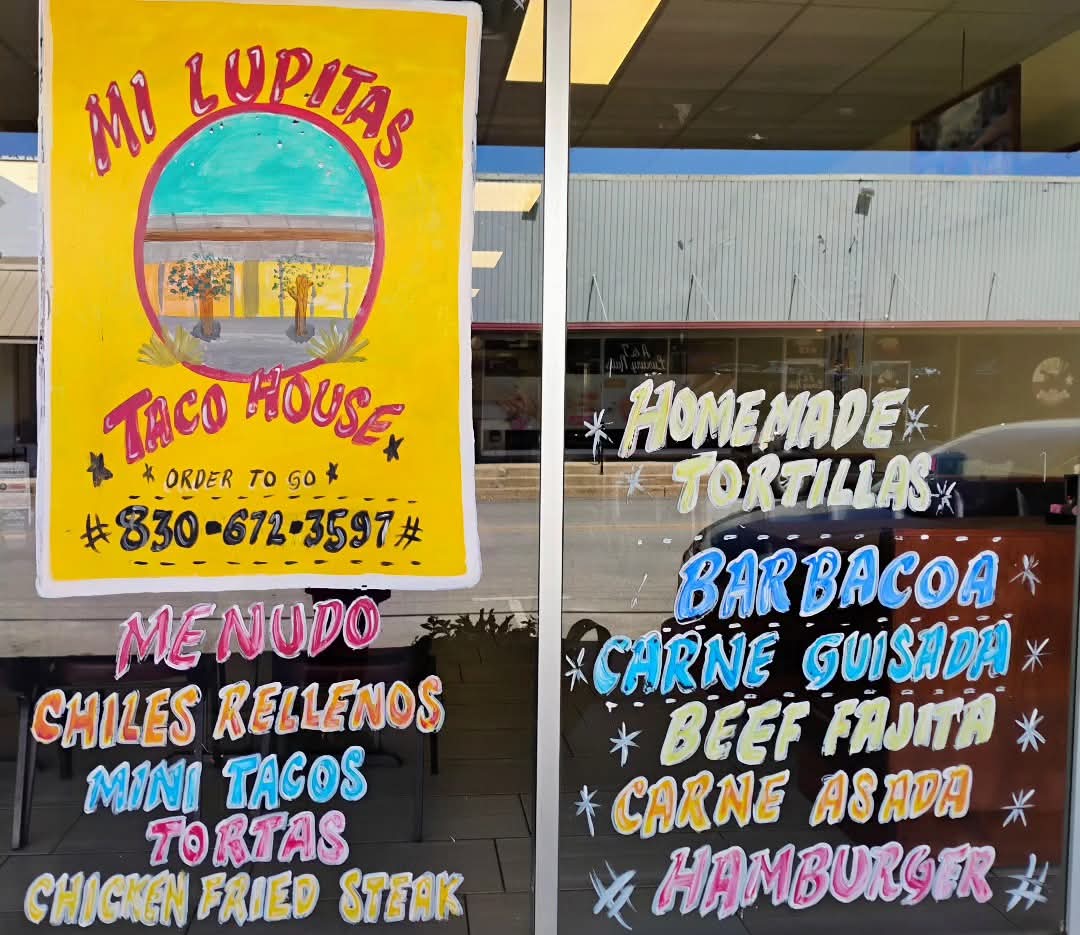 MI LUPITAS
TACO HOUSE
ORDER TO GO
#830-672-3597#
MENUDO
CHILES RELLENOS
MINI TACOS
TORTAS
CHICKEN FRIED STEAK
HOMEMADE
TORTILLAS
BARBACOA
CARNE GUISADA
BEEF FAJITA
CARNE ASADA
HAMBURGER